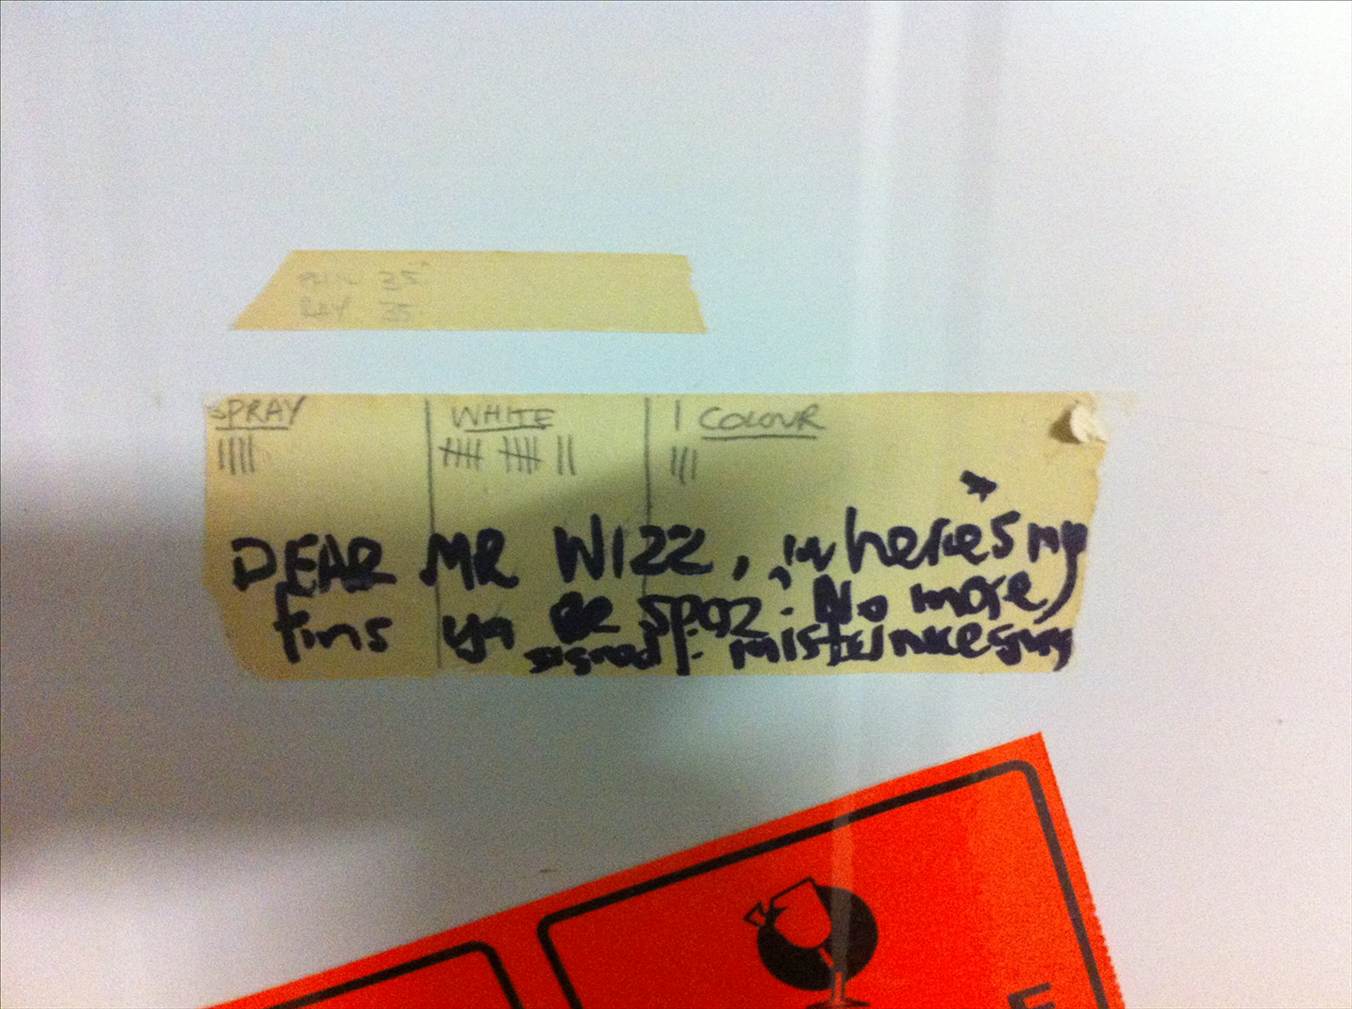 35
RAY 35
SPRAY WHITE 1 COLOUR
|||| |||| |||| || |||
DEAR MR WIZZ, where's my
fins ya spaz. No more,
signed: